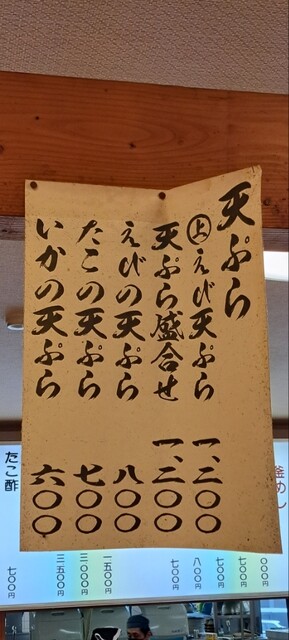 天ぷら
㊤えび天ぷら 一、二〇〇
天ぷら盛合せ 一、二〇〇
えびの天ぷら 八〇〇
たこの天ぷら 七〇〇
いかの天ぷら 六〇〇
釜めし
七〇〇円
七〇〇円
八〇〇円
七〇〇円
一五〇〇円
三〇〇〇円
三五〇〇円
たこ酢 七〇〇円